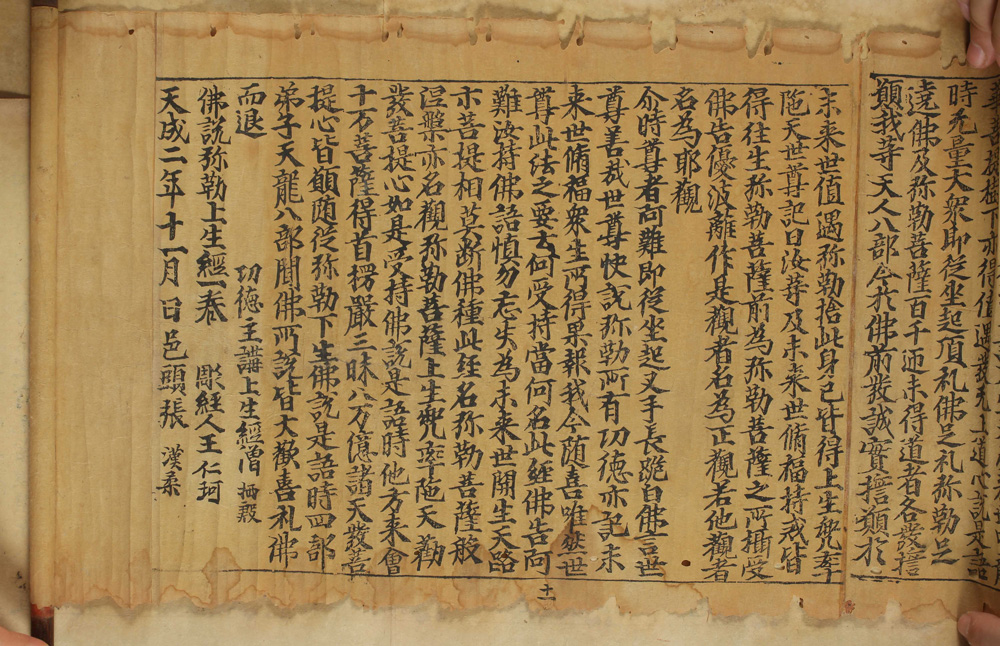 時无量大衆即從坐起頂礼佛足礼弥勒足
遶佛及弥勒菩薩百千迊未得道者各發擔
願我等天人八部今於佛前發誠實擔願於
未来世值遇弥勒捨此身已皆得上生兜率
陁天世尊記曰汝等及未来世脩福持戒皆
得徃生弥勒菩薩前為弥勒菩薩之所攝受
佛告優波離作是觀者名為正觀若他觀者
名為耶觀
尒時尊者阿難即從坐起叉手長跪白佛言世
尊善哉世尊快說弥勒所有㓛徳亦記未
来世脩福衆生所得果報我今随喜唯然世
尊此法之要去何受持當何名此經佛告阿
難汝持佛語慎勿忘失為未来世開生天路
示菩提相莫断佛種此経名弥勒菩薩般
涅槃亦名觀弥勒菩薩上生兜率陁天勸
發菩提心如是受持佛說是語時他方来會
十万菩薩得首楞嚴三昧八万億諸天發菩
提心皆願随從弥勒下生佛說是語時四部
弟子天龍八部聞佛所說皆大歡喜礼佛
而退 㓛徳主講上生經僧 栖殷
佛說弥勒上生經一卷 彫経人王仁珂
天成二年十一月 日邑頭張 漢柔
十一